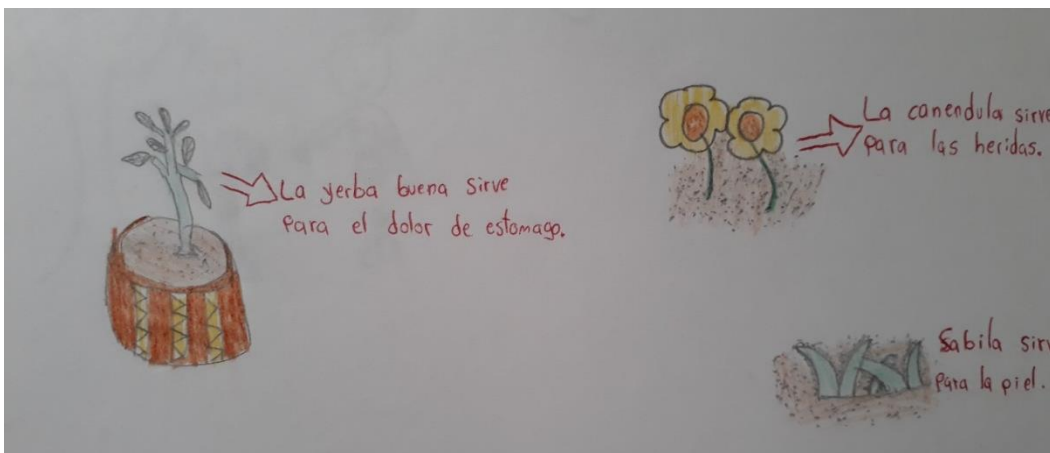 La yerba buena sirve
para el dolor de estomago.
La canendula sirve
para las heridas.
Sabila sirv
para la piel.